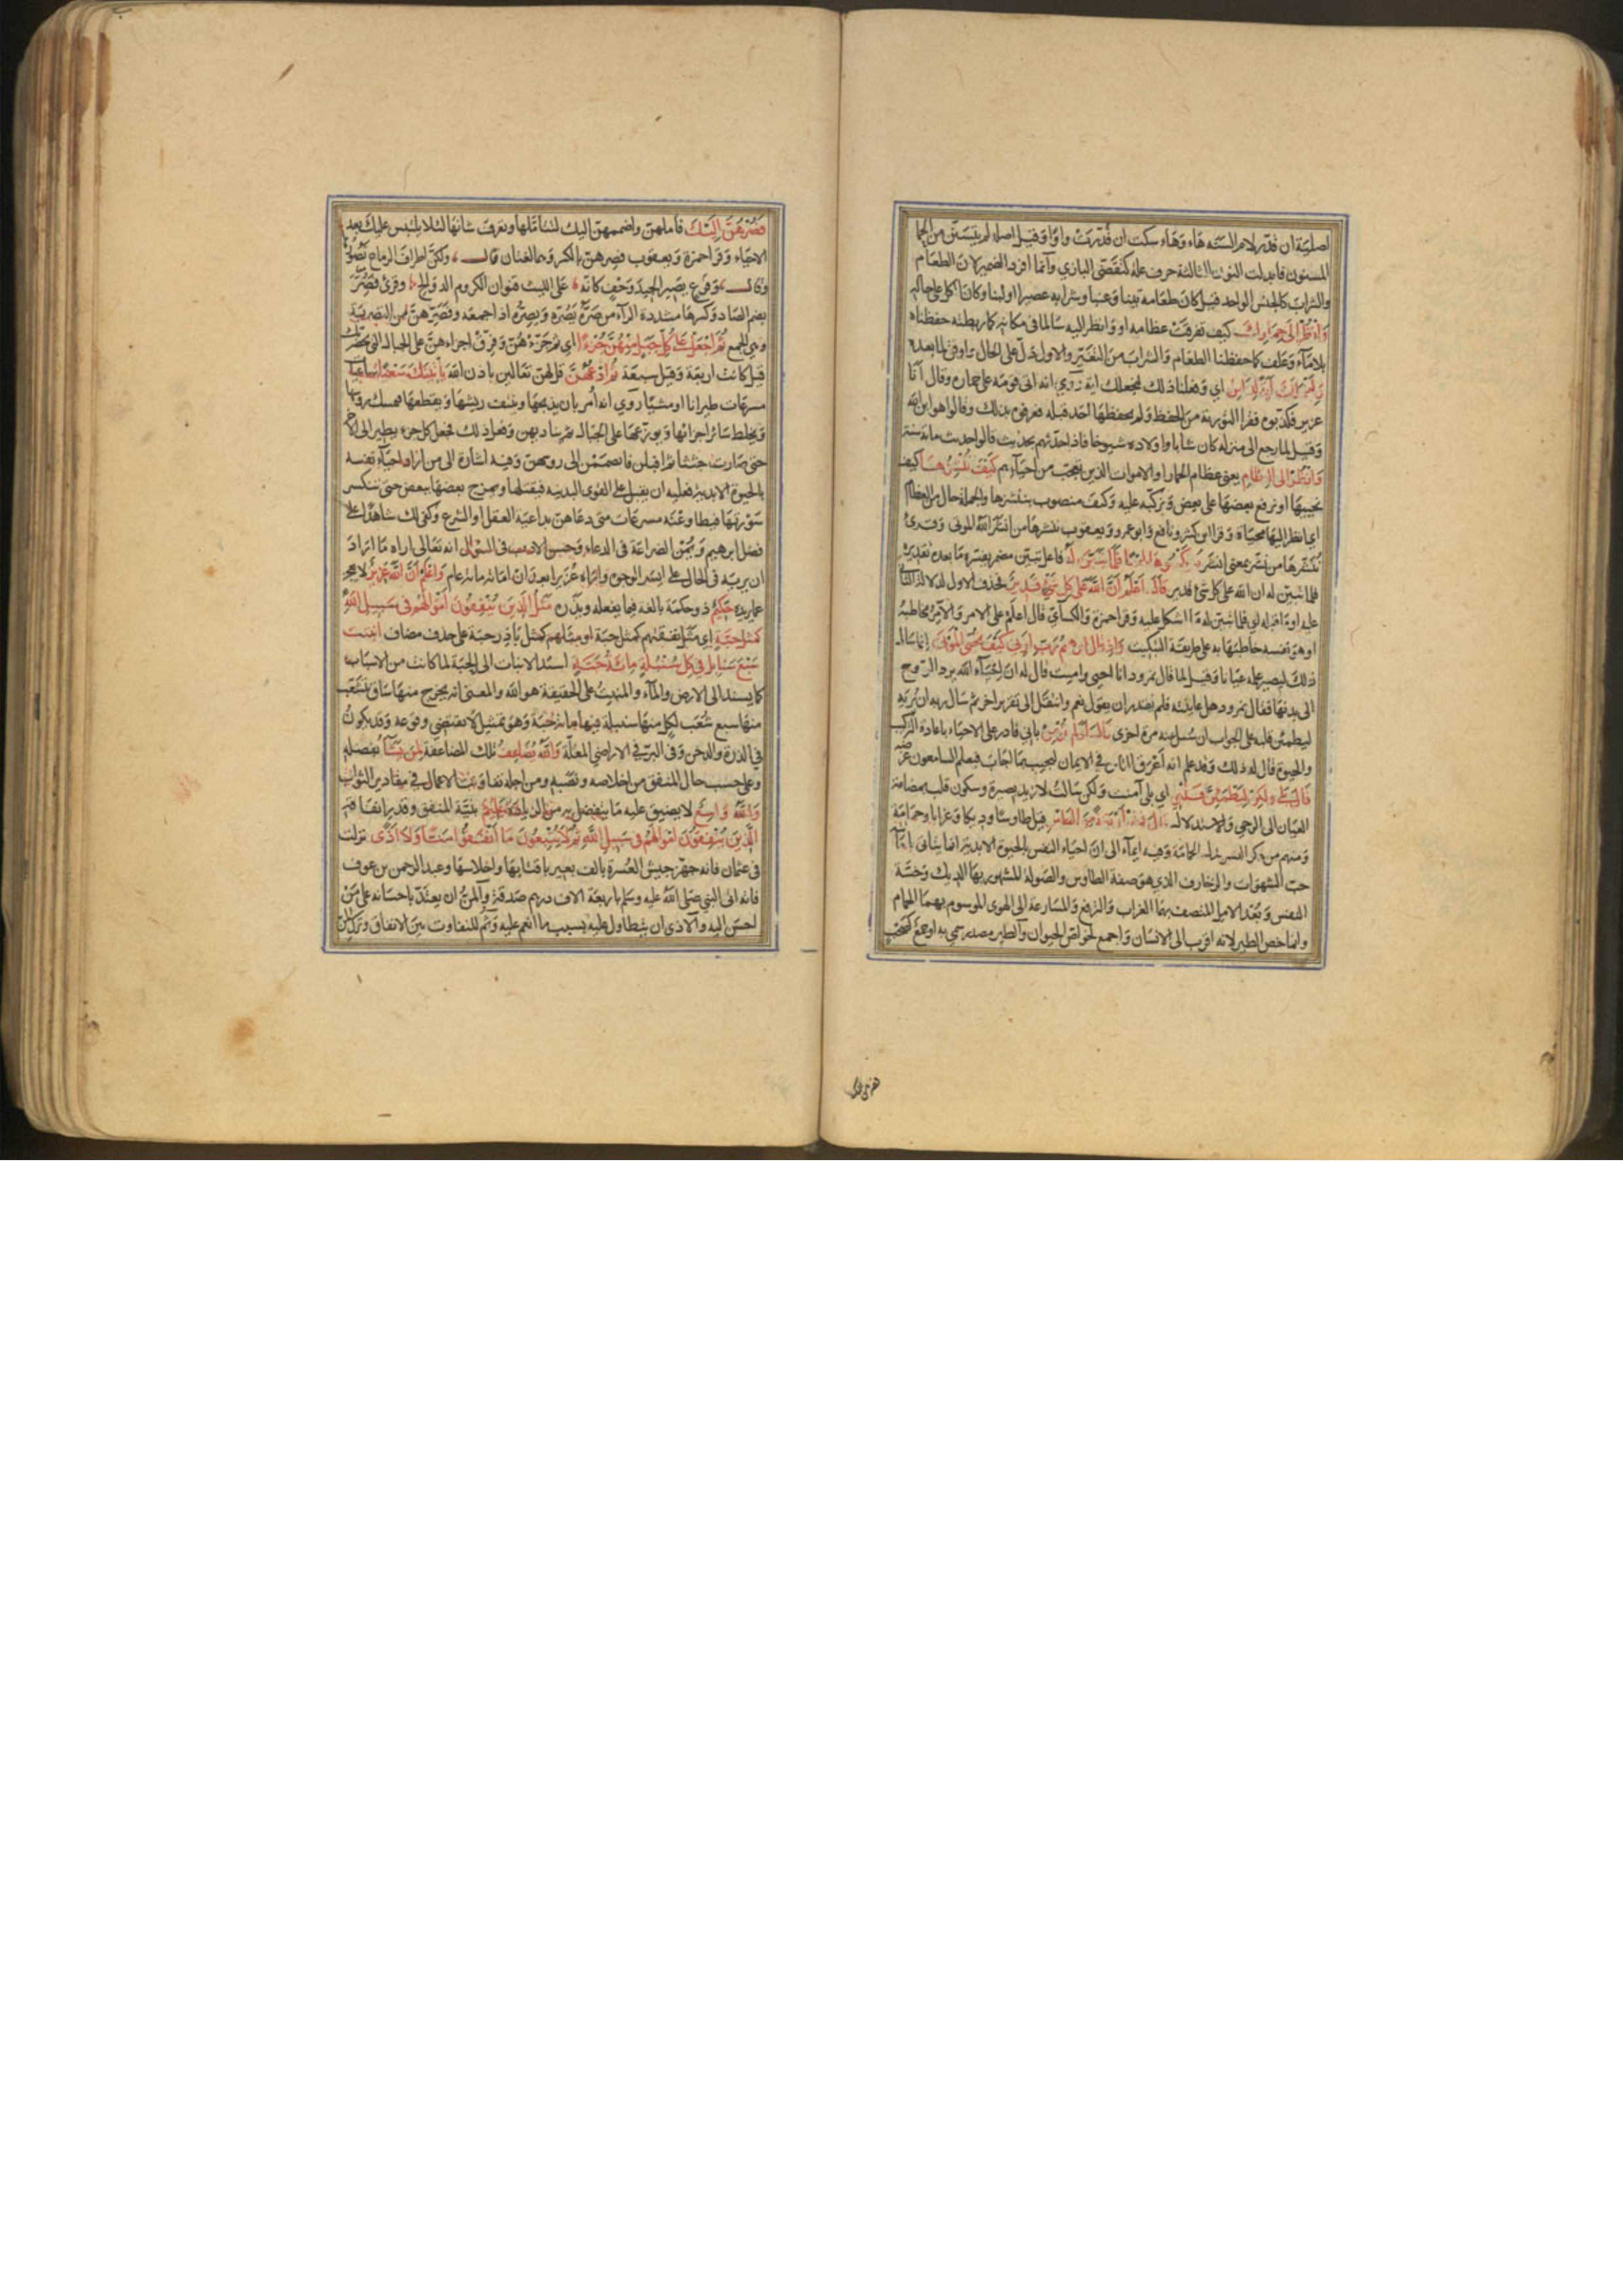 اصلية ان قدر لام السنة هاء وهاء سكت ان قدرت واوا وقيل اصله لم يتسنن من الحما
المسنون فابدلت النون الثالثة حرف علة كتقضى البازي وانما افرد الضمير لان الطعام
والشراب كالجنس الواحد قيل كان طعامه تينا وعنبا وشرابه عصيرا او لبنا وكان الكل على حاله
وانظر الى حمارك كيف تفرقت عظامه او وانظر اليه سالما في مكانه كما ربطته حفظناه
بلا ماء وعلف كما حفظنا الطعام والشراب من التغير والاول ادل على الحال واوفق لما بعده
ولنجعلك آية للناس اي وفعلنا ذلك لنجعلك اية روي انه اتى قومه على حماره وقال انا
عزير فكذبوه فقرا التورية من الحفظ ولم يحفظها احد قبله فعرفوه بذلك وقالوا هو ابن الله
وقيل لما رجع الى منزله كان شابا واولاده شيوخا فاذا حدثهم بحديث قالوا حديث مائة سنة
وانظر الى العظام يعني عظام الحمار او الاموات الذين تعجب من احيائهم كيف ننشرها كيف
نحييها او نرفع بعضها على بعض ونركبه عليه وكيف منصوب بننشزها والجملة حال من العظام
اي انظر اليها محياة وقرا ابن كثير ونافع وابو عمرو ويعقوب ننشرها من انشر الله الموتى وقرئ
ننشرها من نشر بمعنى انشر ثم نكسوها لحما فلما تبين له فاعل تبين مضمر يفسره ما بعده تقديره
فلما تبين له ان الله على كل شئ قدير قال اعلم ان الله على كل شئ قدير فحذف الاول لدلالة الثاني
عليه او ما قبله اي فلما تبين له ما اشكل عليه وقرا حمزة والكسائي قال اعلم على الامر والامر مخاطبه
او هو نفسه خاطبها به على طريقة التبكيت واذ قال ابرهيم رب ارني كيف تحيي الموتى انما سال
ذلك ليصير علمه عيانا وقيل لما قال نمرود انا احيي واميت قال له ان احياء الله برد الروح
الى بدنها فقال نمرود هل عاينته فلم يقدر ان يقول نعم وانتقل الى تقرير اخر ثم سال ربه ان يريه
ليطمئن قلبه على الجواب ان سئل عنه مرة اخرى قال اولم تؤمن باني قادر على الاحياء باعادة التركيب
والحيوة قال له ذلك وقد علم انه اعرق الناس في الايمان ليجيب بما اجاب فيعلم السامعون غرضه
قال بلى ولكن ليطمئن قلبي اي بلى آمنت ولكن سالت لازيد بصيرة وسكون قلب بمضامة
العيان الى الوحي والاستدلال قال فخذ اربعة من الطير قيل طاوسا وديكا وغرابا وحمامة
ومنهم من ذكر النسر بدل الحمامة وفيه ايماء الى ان احياء النفس بالحيوة الابدية انما يتاتى باماتة
حب الشهوات والزخارف الذي هو صفة الطاوس والصولة المشهور بها الديك وخسة
النفس وبعد الامل المتصف بهما الغراب والترفع والمسارعة الى الهوى الموسوم بهما الحمام
وانما خص الطير لانه اقرب الى الانسان واجمع لخواص الحيوان والطير مصدر سمي به او جمع كصحب
فصرهن اليك فاملهن واضممهن اليك لتتاملها وتعرف شانها لئلا يلتبس عليك بعد
الاحياء وقرا حمزة ويعقوب فصرهن بالكسر وهما لغتان قال ولكن اطراف الرماح تصورها
وقال وفرع يصير الجيد وحف كانه على الليت قنوان الكروم الدوالح وقرئ فصرهن
بضم الصاد وكسرها مشددة الراء من صره يصره ويصره اذا جمعه وفصرهن من التصرية
وهي الجمع ثم اجعل على كل جبل منهن جزءا اي ثم جزئهن وفرق اجزاءهن على الجبال التي بحضرتك
قيل كانت اربعة وقيل سبعة ثم ادعهن قل لهن تعالين باذن الله ياتينك سعيا ساعيات
مسرعات طيرانا او مشيا روي انه امر بان يذبحها وينتف ريشها ويقطعها فيمسك رؤسها
ويخلط سائر اجزائها ويوزعها على الجبال ثم يناديهن وفعل ذلك فجعل كل جزء يطير الى الاخر
حتى صارت جثثا ثم اقبلن فانضممن الى رؤسهن وفيه اشارة الى من اراد احياء نفسه
بالحيوة الابدية فعليه ان يقبل على القوى البدنية فيقتلها ويمزج بعضها ببعض حتى تنكسر
سورتها فيطاوعنه مسرعات متى دعاهن بداعية العقل او الشرع وكفى لك شاهدا على
فضل ابرهيم ويمن الضراعة في الدعاء وحسن الادب في السؤال انه تعالى اراه ما اراد
ان يريه في الحال على ايسر الوجوه واراه عزيرا بعد ان اماته مائة عام واعلم ان الله عزيز لا يعجز
عما يريده حكيم ذو حكمة بالغة فيما يفعله ويذره مثل الذين ينفقون اموالهم في سبيل الله
كمثل حبة اي مثل نفقتهم كمثل حبة او مثلهم كمثل باذر حبة على حذف مضاف انبتت
سبع سنابل في كل سنبلة مائة حبة اسند الانبات الى الحبة لما كانت من الاسباب
كما يسند الى الارض والماء والمنبت على الحقيقة هو الله والمعنى انه يخرج منها ساق يتشعب
منها سبع شعب لكل منها سنبلة فيها مائة حبة وهو تمثيل لا تقتضي وقوعه وقد يكون
في الذرة والدخن وفي البر في الاراضي المغلة والله يضاعف تلك المضاعفة لمن يشاء بفضله
وعلى حسب حال المنفق من اخلاصه وتعبه ومن اجله تفاوتت الاعمال في مقادير الثواب
والله واسع لا يضيق عليه ما يتفضل به من الزيادة عليم بنية المنفق وقدر انفاقه
الذين ينفقون اموالهم في سبيل الله ثم لا يتبعون ما انفقوا منا ولا اذى نزلت
في عثمان فانه جهز جيش العسرة بالف بعير باقتابها واحلاسها وعبد الرحمن بن عوف
فانه اتى النبي صلى الله عليه وسلم باربعة الاف درهم صدقة والمن ان يعتد باحسانه على من
احسن اليه والاذى ان يتطاول عليه بسبب ما انعم عليه وثم للتفاوت بين الانفاق وترك المن